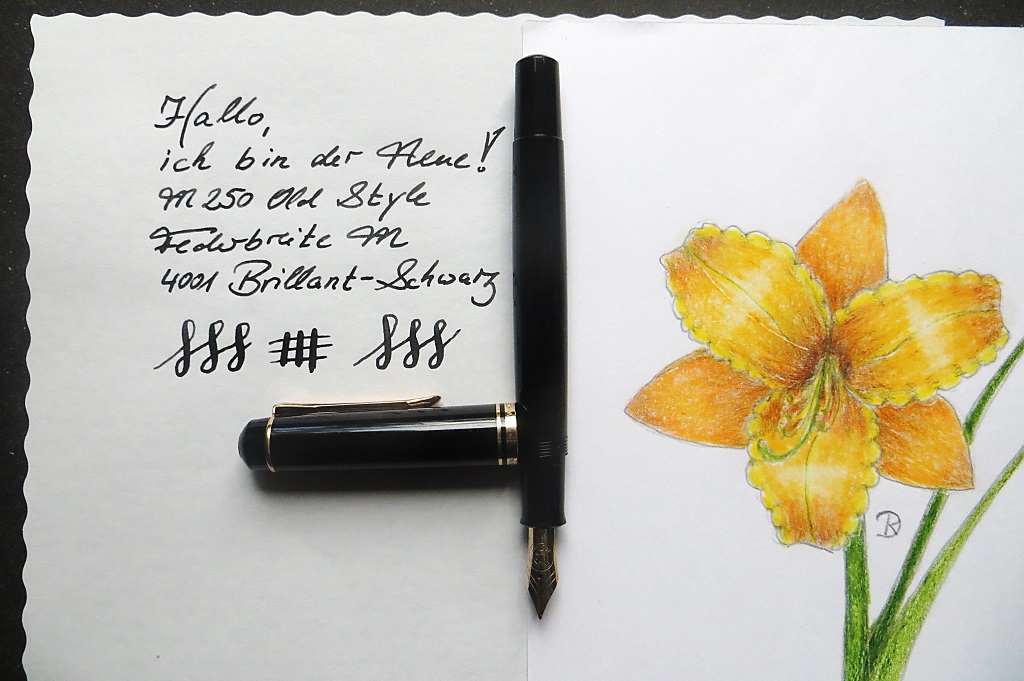 Hallo,
ich bin der Neue!
M250 Old Style
Federbreite M
4001 Brillant-Schwarz